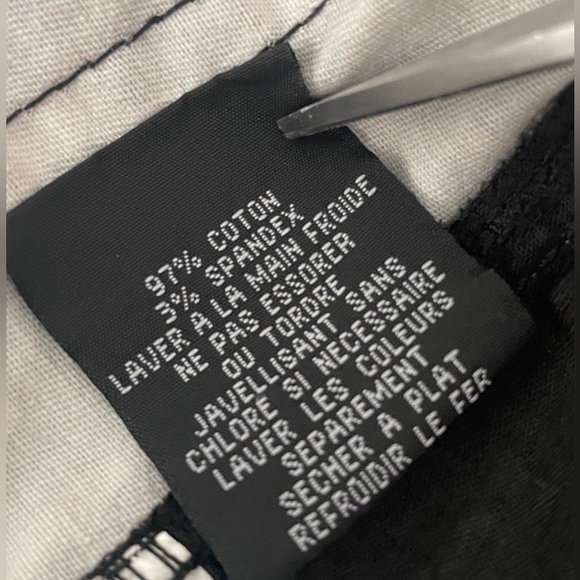 97% COTON
3% SPANDEX
LAVER À LA MAIN FROIDE
NE PAS ESSORER
OU TORDRE
JAVELLISANT SANS
CHLORE SI NECESSAIRE
LAVER LES COULEURS
SEPAREMENT
SECHER A PLAT
REFROIDIR LE FER